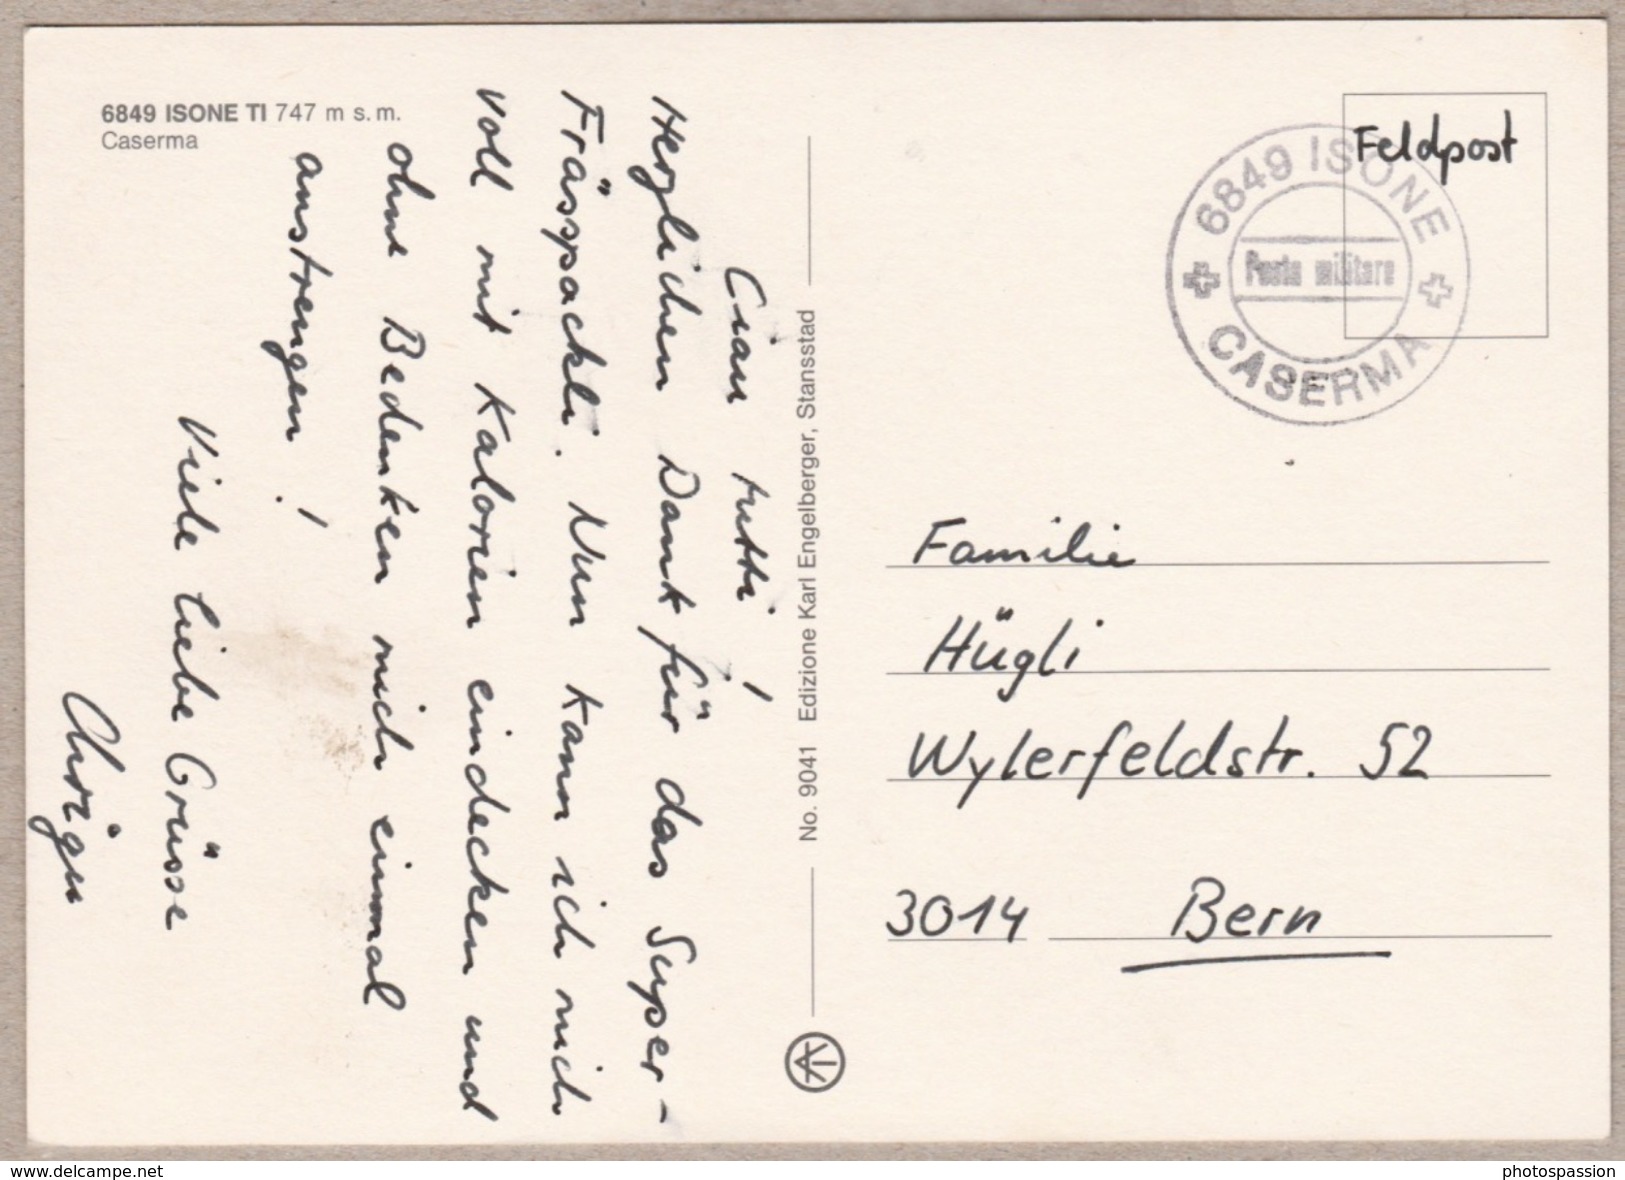 6849 ISONE TI 747 m s.m.
Caserma
Ciau tutti!
Herzlichen Dank für das Super-
Frässpäckli. Nun kann ich mich
voll mit Kalorien eindecken und
ohne Bedenken mich einmal
anstrengen!
Viele liebe Grüsse
Chrigu
No. 9041 Edizione Karl Engelberger, Stansstad
Feldpost
6849 ISONE
Posta militare
CASERMA
Familie
Hügli
Wylerfeldstr. 52
3014 Bern
www.delcampe.net
photospassion